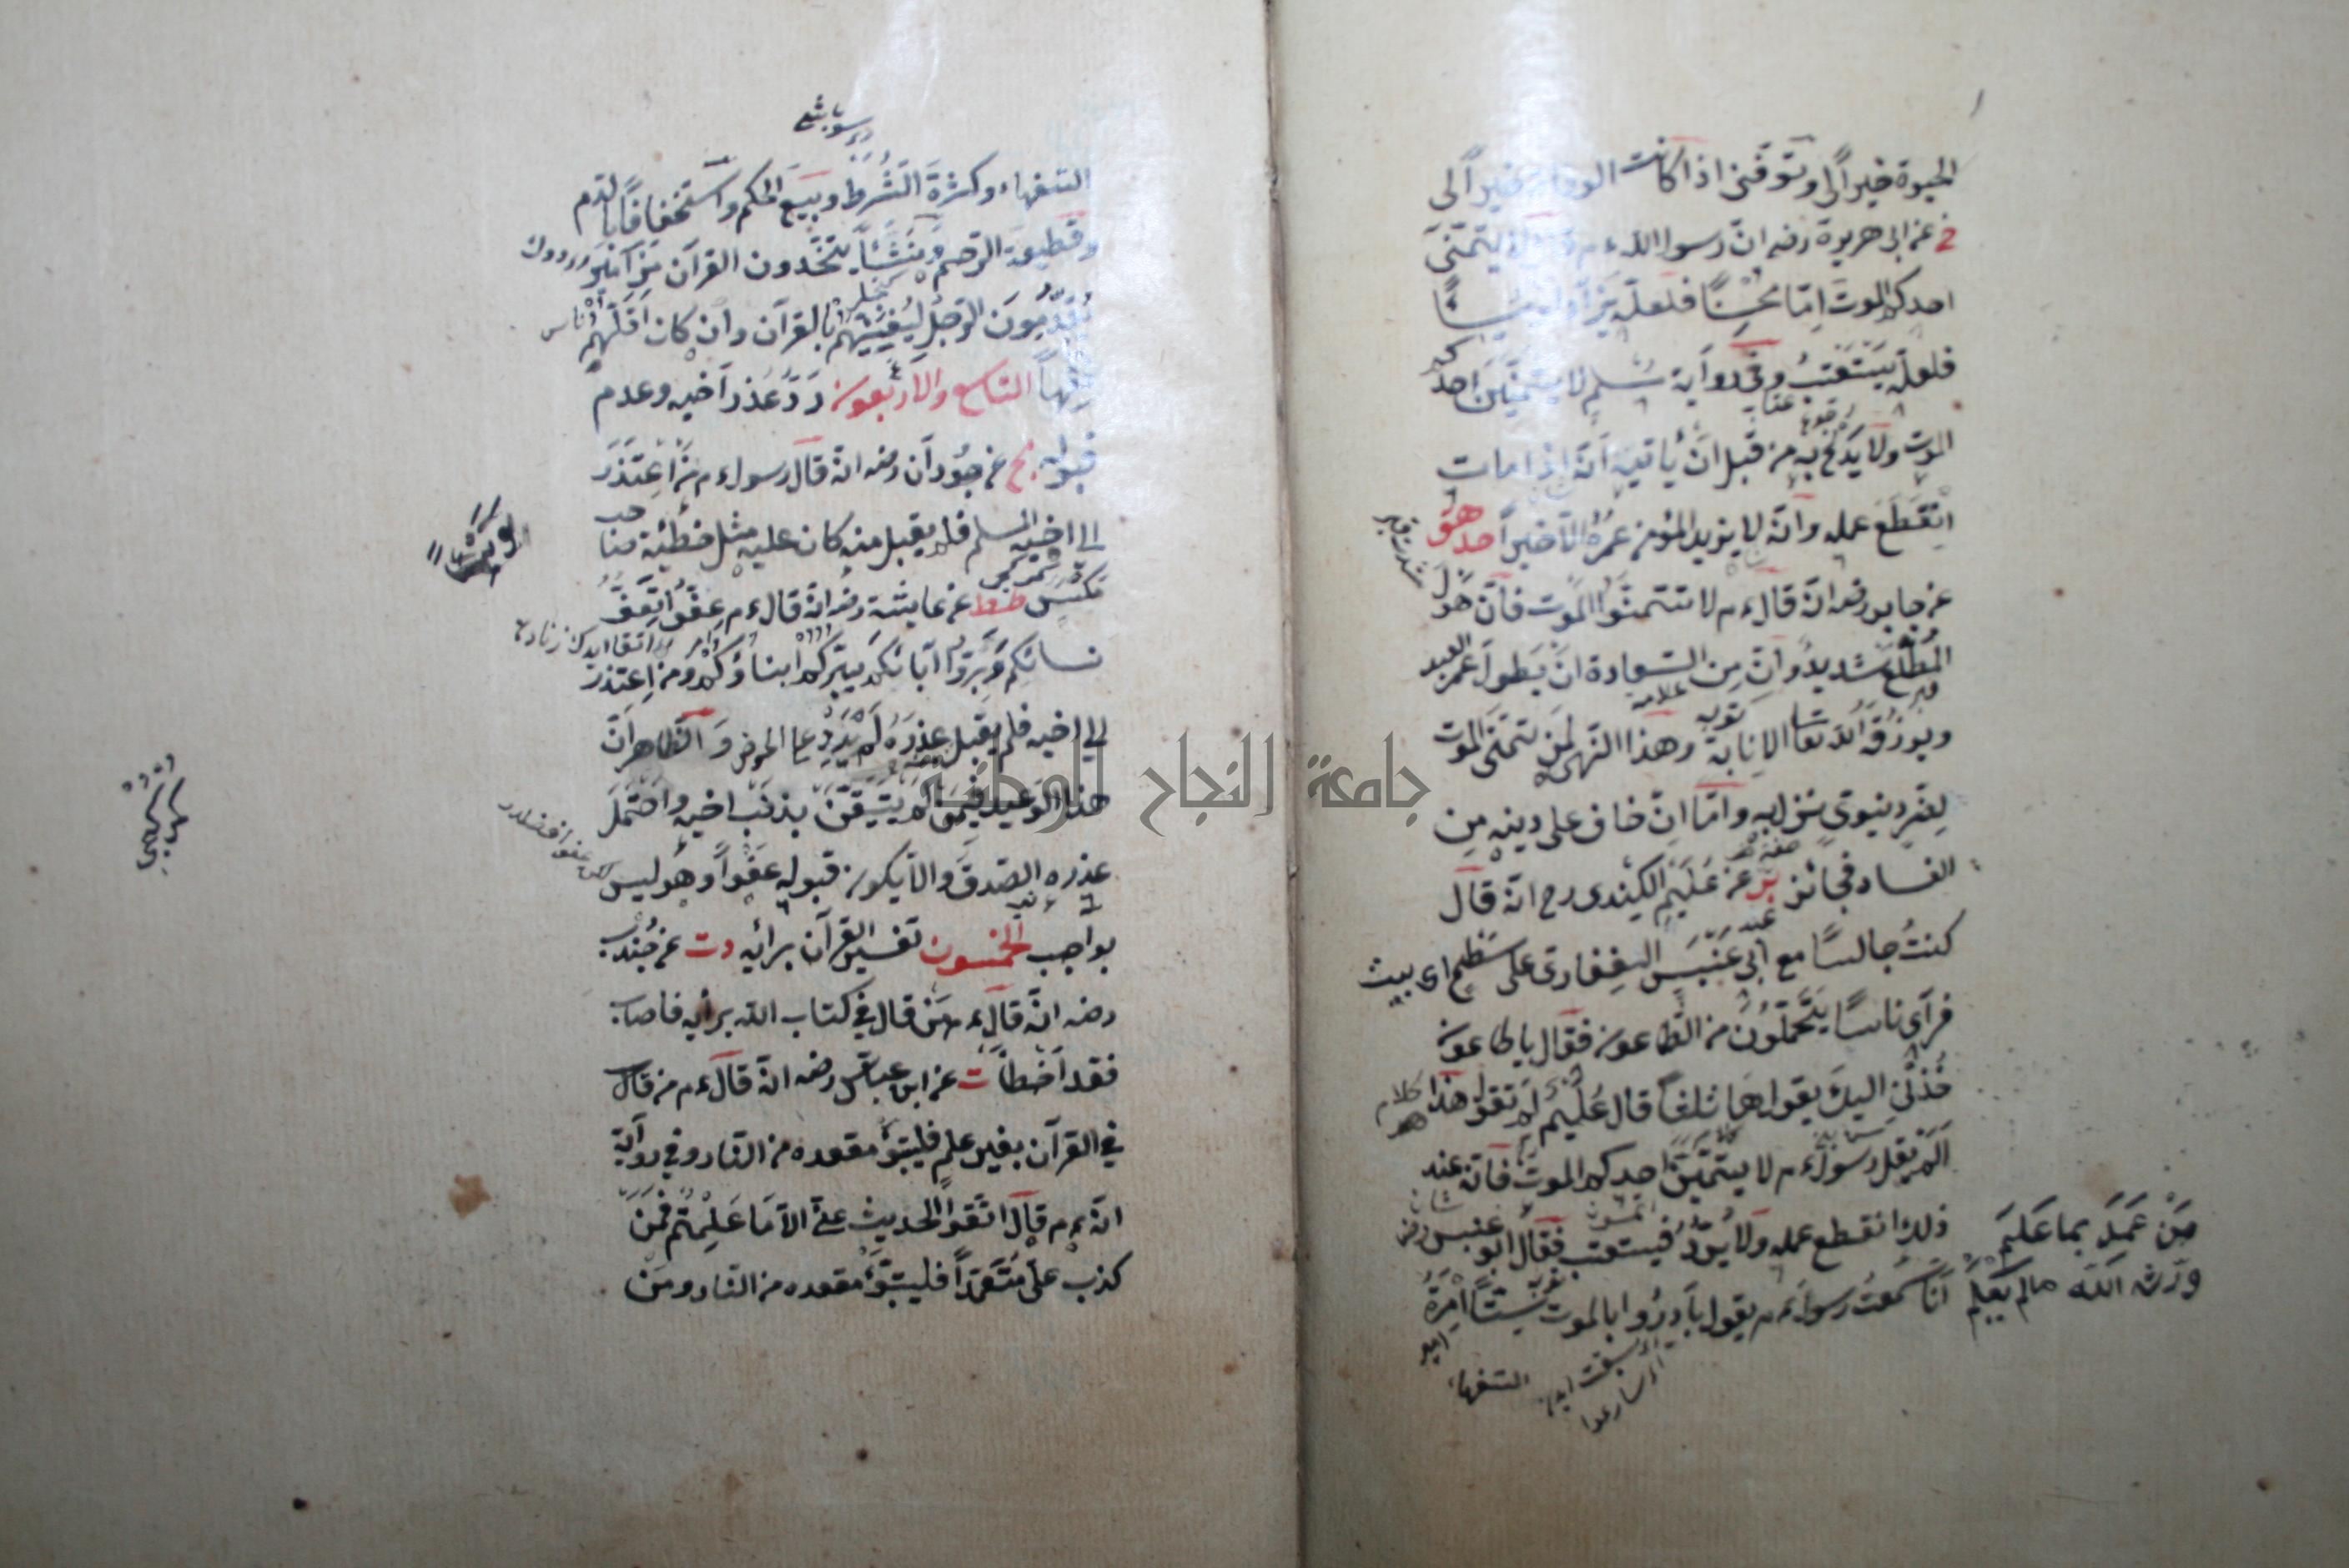 الحيوة خيراً لى وتوفنى اذا كانت الوفاة خيراً لى
خ عن ابى هريرة رضه ان رسول الله ءم قال لا يتمنى
احدكم الموت امّا محسنًا فلعله يزداد وامّا مسيئًا
فلعله يستعتب وفى رواية مسلم لا يتمنين احدكم
الموت ولا يدع به من قبل ان يأتيه انه اذا مات
انقطع عمله وانه لا يزيد المؤمن عمره الا خيراً حد هق
عن جابر رضه انه قال ءم لا تتمنوا الموت فان هول
المطلع شديد وان من السعادة ان يطول عمر العبد
ويرزقه الله تعا الانابة وهذا النهى لمن يتمنى الموت
لضر دنيوى نزل به واما ان خاف على دينه من
الفساد فجائز بر عن عليم الكندى رح انه قال
كنت جالسًا مع ابى عنبس الغفارى على سطح اى بيت
فرآى ناسًا يتحملون من الطاعون فقال يا طاعون
خذنى اليك يقولها ثلثاً قال عليم لم تقول هذا كلام
الم يقل رسول ءم لا يتمنين احدكم الموت فانه عند
ذلك انقطع عمله ولا يرد فيستعتب فقال ابو عنبس رضه
انا سمعت رسول ءم يقول بادروا بالموت ستًا امرة
السفهاء
من عمل بما علم
ورث الله مالم يعلم
السفهاء وكثرة الشرط وبيع الحكم واستخفافًا بالدم
وقطيعة الرحم ونشئًا يتخذون القرآن مزامير
يقدمون الرجل ليغنيهم بالقرآن وان كان اقلهم
فقهاً التاسع والاربعون رد عذر اخيه وعدم
قبوله مج عن جودان رضه انه قال رسول ءم من اعتذر
الى اخيه المسلم فلم يقبل منه كان عليه مثل خطيئة صاحب
مكس طط عن عايشة رضه انه قال ءم عفوا تعف
نسائكم وبروا آبائكم يبركم ابناؤكم ومن اعتذر
الى اخيه فلم يقبل عذره لم يرد على الحوض والظاهر ان
هذا الوعيد فيمن لم يتيقن بذنب اخيه واحتمل
عذره الصدق والا يكون قبوله عفواً وهو ليس
بواجب الخمسون تفسير القرآن برأيه دت عن جندب
رضه انه قال ءم من قال فى كتاب الله برأيه فاصاب
فقد اخطأ ت عن ابن عباس رضه انه قال ءم من قال
فى القرآن بغير علم فليتبوأ مقعده من النار وفى رواية
انه ءم قال اتقوا الحديث على الا ما علمتم فمن
كذب على متعمداً فليتبوأ مقعده من النار ومن
جامعة النجاح الوطنية